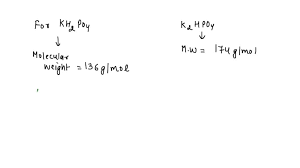 For KH2PO4
↓
Molecular
weight = 136 g/mol
K2HPO4
↓
M.W = 174 g/mol